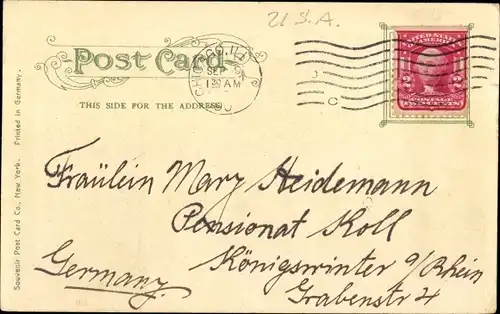 U.S.A.
Post Card
THIS SIDE FOR THE ADDRESS
CHICAGO, ILL
SEP
1 30 AM
UNITED STATES
OF AMERICA
2 2
POSTAGE
TWO CENTS
Souvenir Post Card Co., New York. Printed in Germany.
Fräulein Mary Heidemann
Pensionat Koll
Königswinter a/Rhein
Grabenstr 4
Germany.